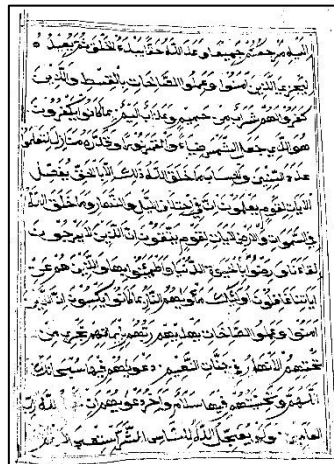 اليه مرجعكم جميعا وعد الله حقا انه يبدؤا الخلق ثم يعيده
ليجزي الذين ءامنوا وعملوا الصالحات بالقسط والذين
كفروا لهم شراب من حميم وعذاب اليم بما كانوا يكفرون
هو الذي جعل الشمس ضياء والقمر نورا وقدره منازل لتعلموا
عدد السنين والحساب ما خلق الله ذلك الا بالحق يفصل
الايات لقوم يعلمون ان في اختلاف اليل والنهار وما خلق الله
في السموات والارض لايات لقوم يتقون ان الذين لا يرجون
لقاءنا ورضوا بالحيوة الدنيا واطمأنوا بها والذين هم عن
اياتنا غافلون اولئك مأويهم النار بما كانوا يكسبون ان الذين
امنوا وعملوا الصالحات يهديهم ربهم بايمانهم تجري من
تحتهم الانهار في جنات النعيم دعويهم فيها سبحانك
اللهم وتحيتهم فيها سلام واخر دعويهم ان الله رب
العالمين ولو يعجل الله للناس الشر استعجالهم